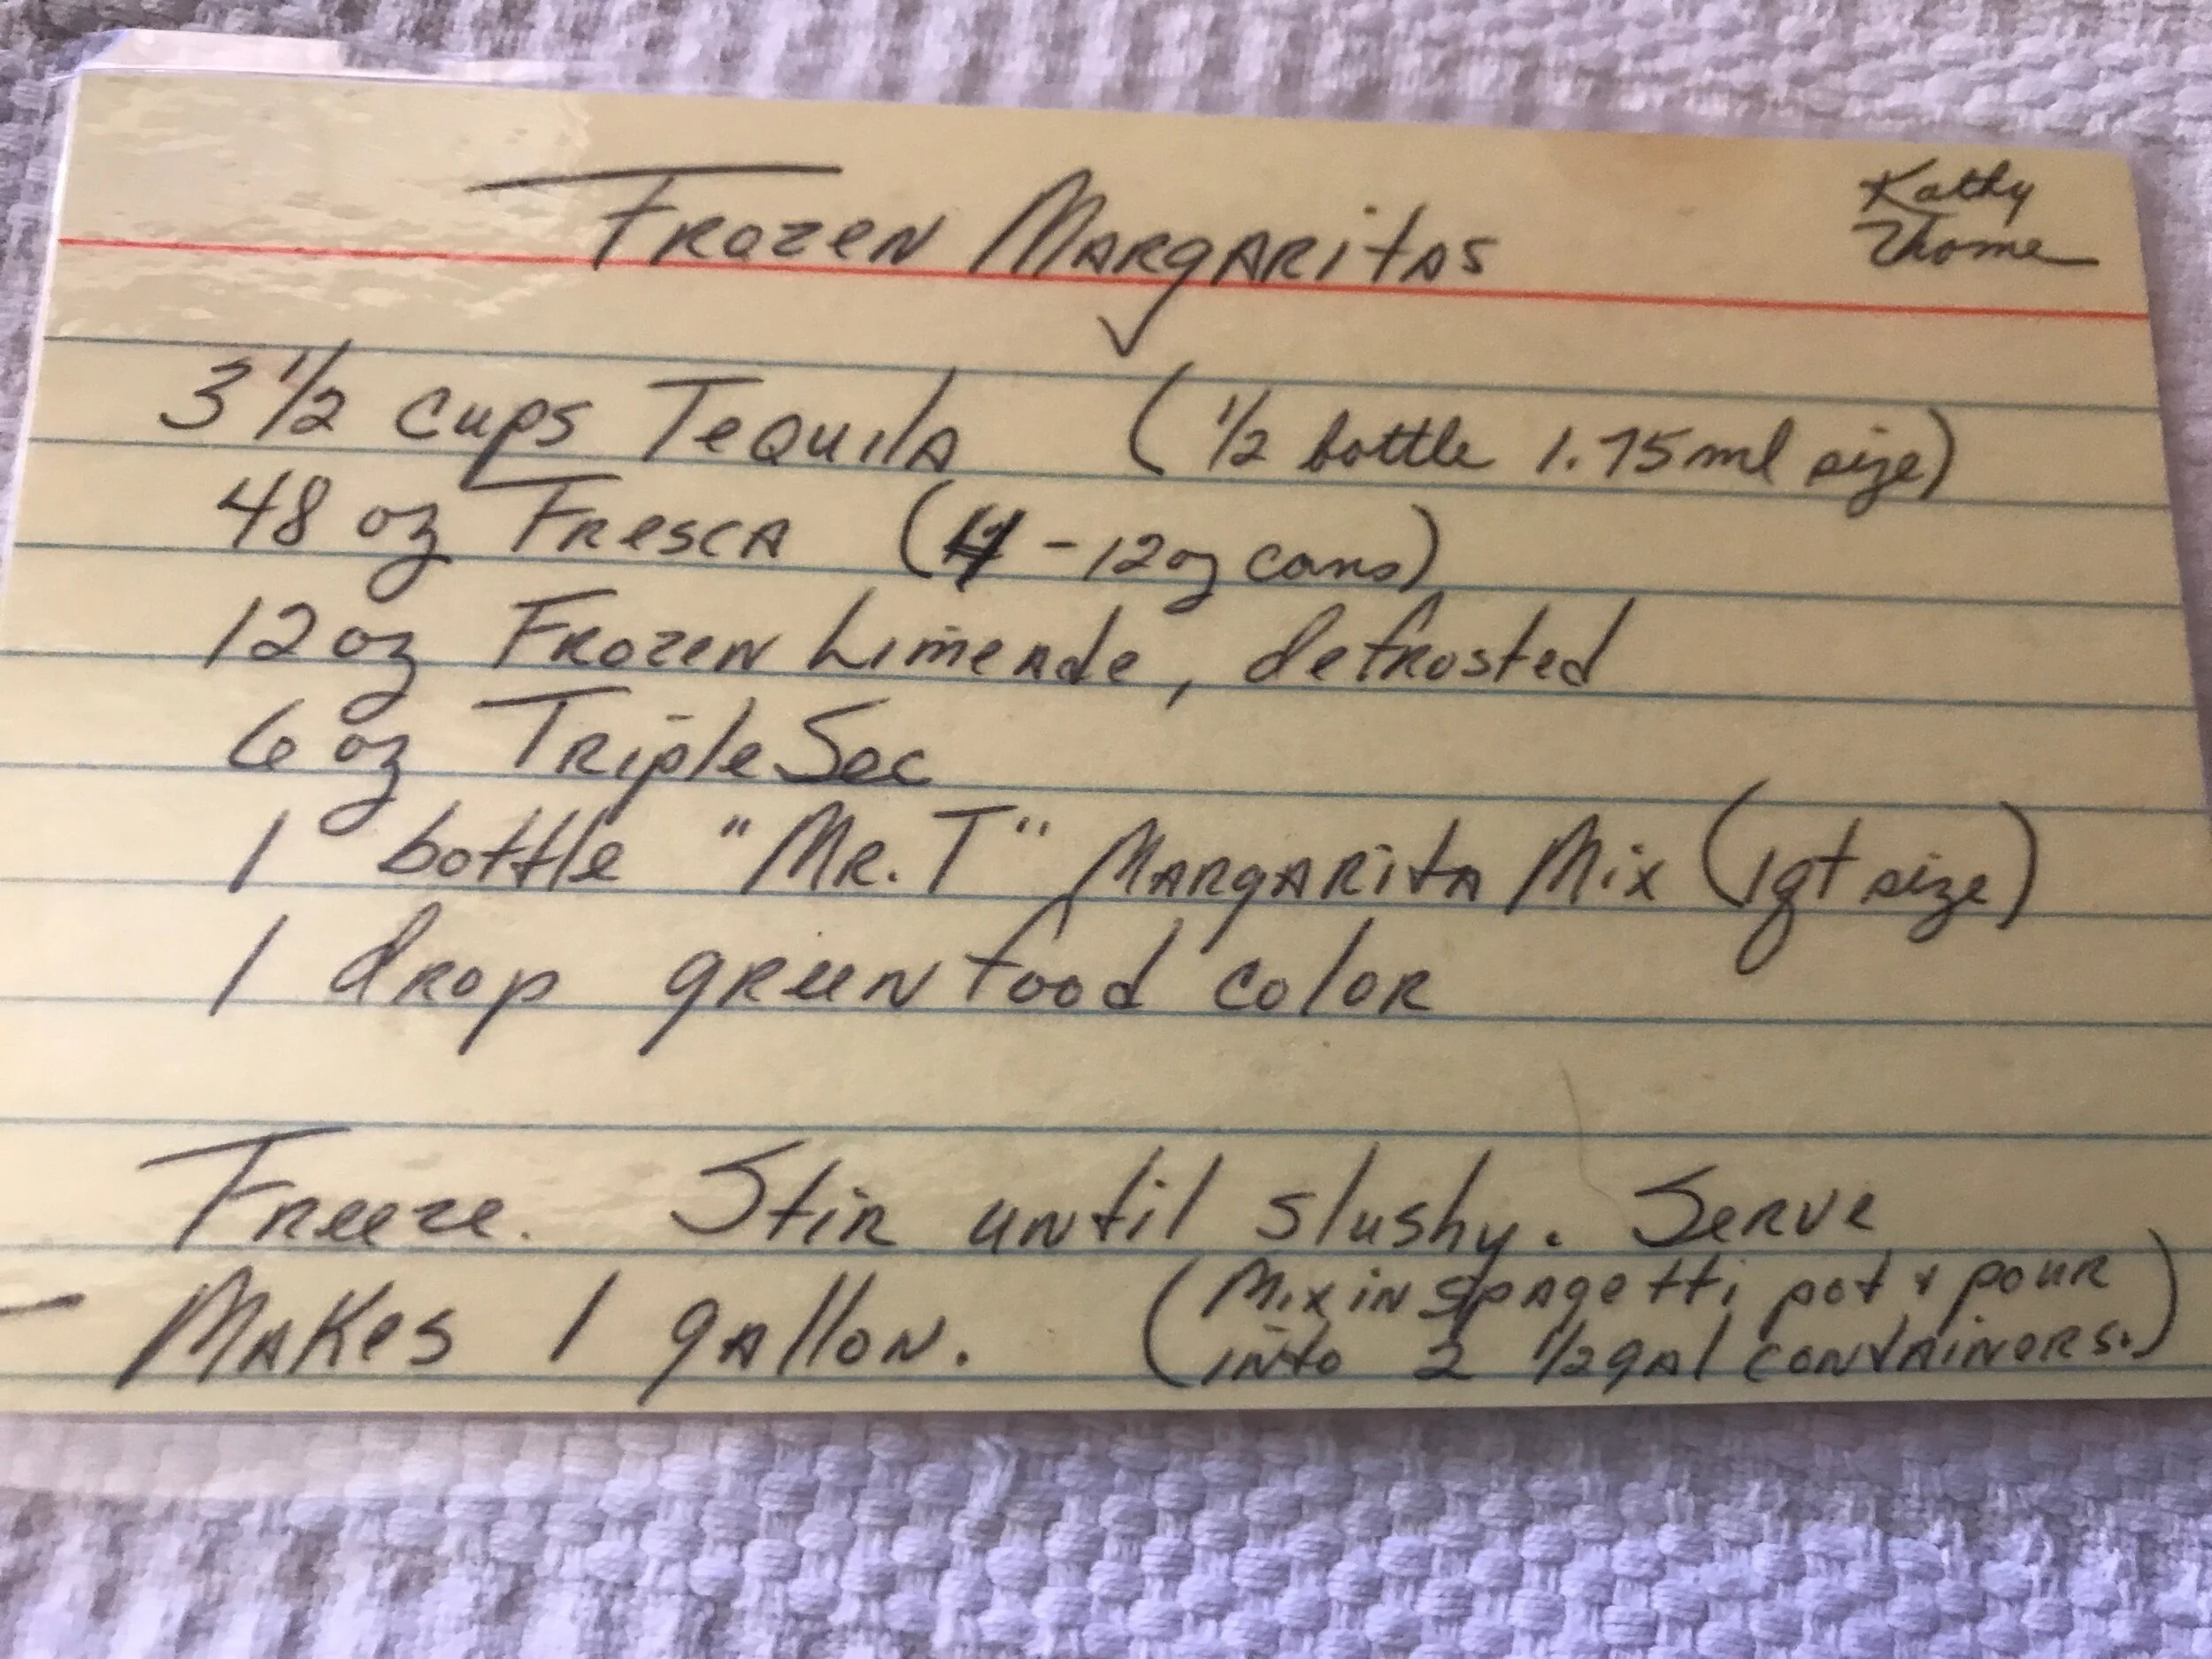 Frozen Margaritas
Kathy
Thome
3 1/2 cups Tequila (1/2 bottle 1.75ml size)
48 oz Fresca (4 - 12oz cans)
12 oz Frozen Limeade, defrosted
6 oz Triple Sec
1 bottle "Mr. T" Margarita Mix (1qt size)
1 drop green food color
Freeze. Stir until slushy. Serve
- Makes 1 gallon. (Mix in spagetti pot & pour
into 2 1/2 gal containers.)